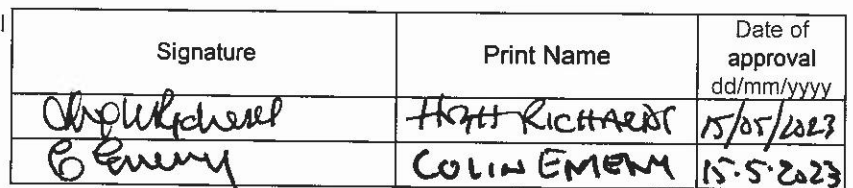 Signature Print Name Date of approval dd/mm/yyyy
HUGH RICHARDS 15/05/2023
C Emeny COLIN EMENY 15.5.2023